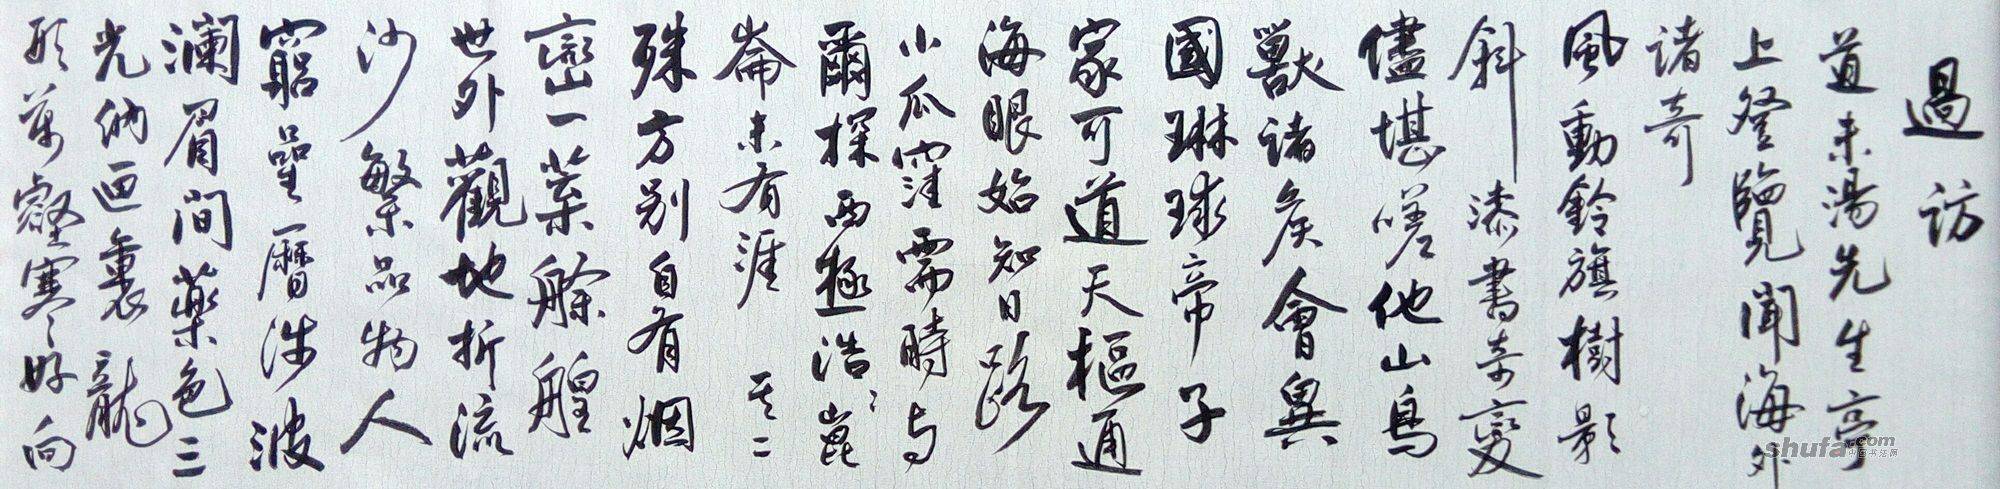 過訪
道未湯先生亭
上登覽聞海外
諸奇
風動鈴旗樹影
斜漆書奇變
儘堪嗟他山鳥
獸諸侯會異
國琳球帝子
家可道天樞通
海眼始知日路
小瓜窪需時与
爾探兩極浩〻崑
崙未有涯 其二
殊方別自有烟
巒一葉艅艎
世外觀地折流
沙繁品物人
窮星曆涉波
瀾眉間藥色三
光納匣裏龍
形萬壑寒好向
shufa.com
中国书法网